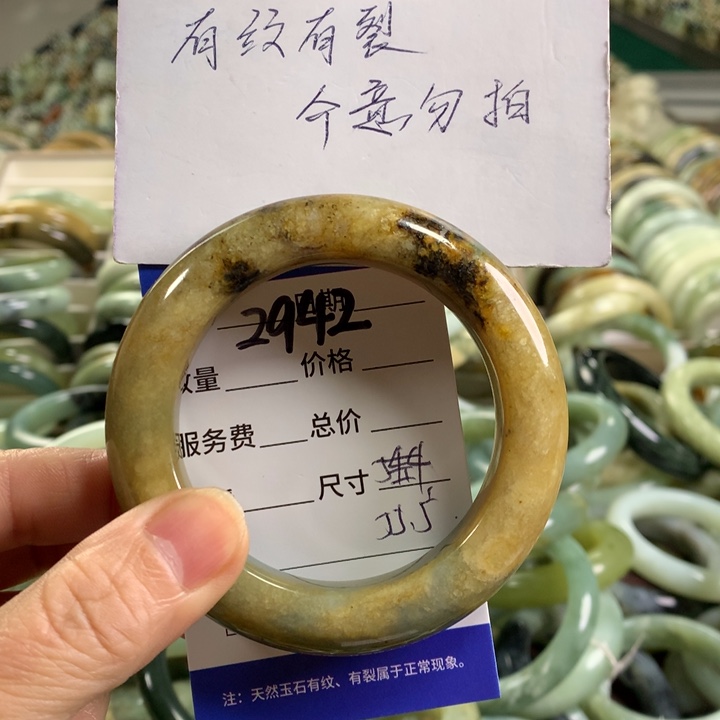 有纹有裂
介意勿拍
日期
2942
数量 价格
服务费 总价
尺寸
55.5
注：天然玉石有纹、有裂属于正常现象。